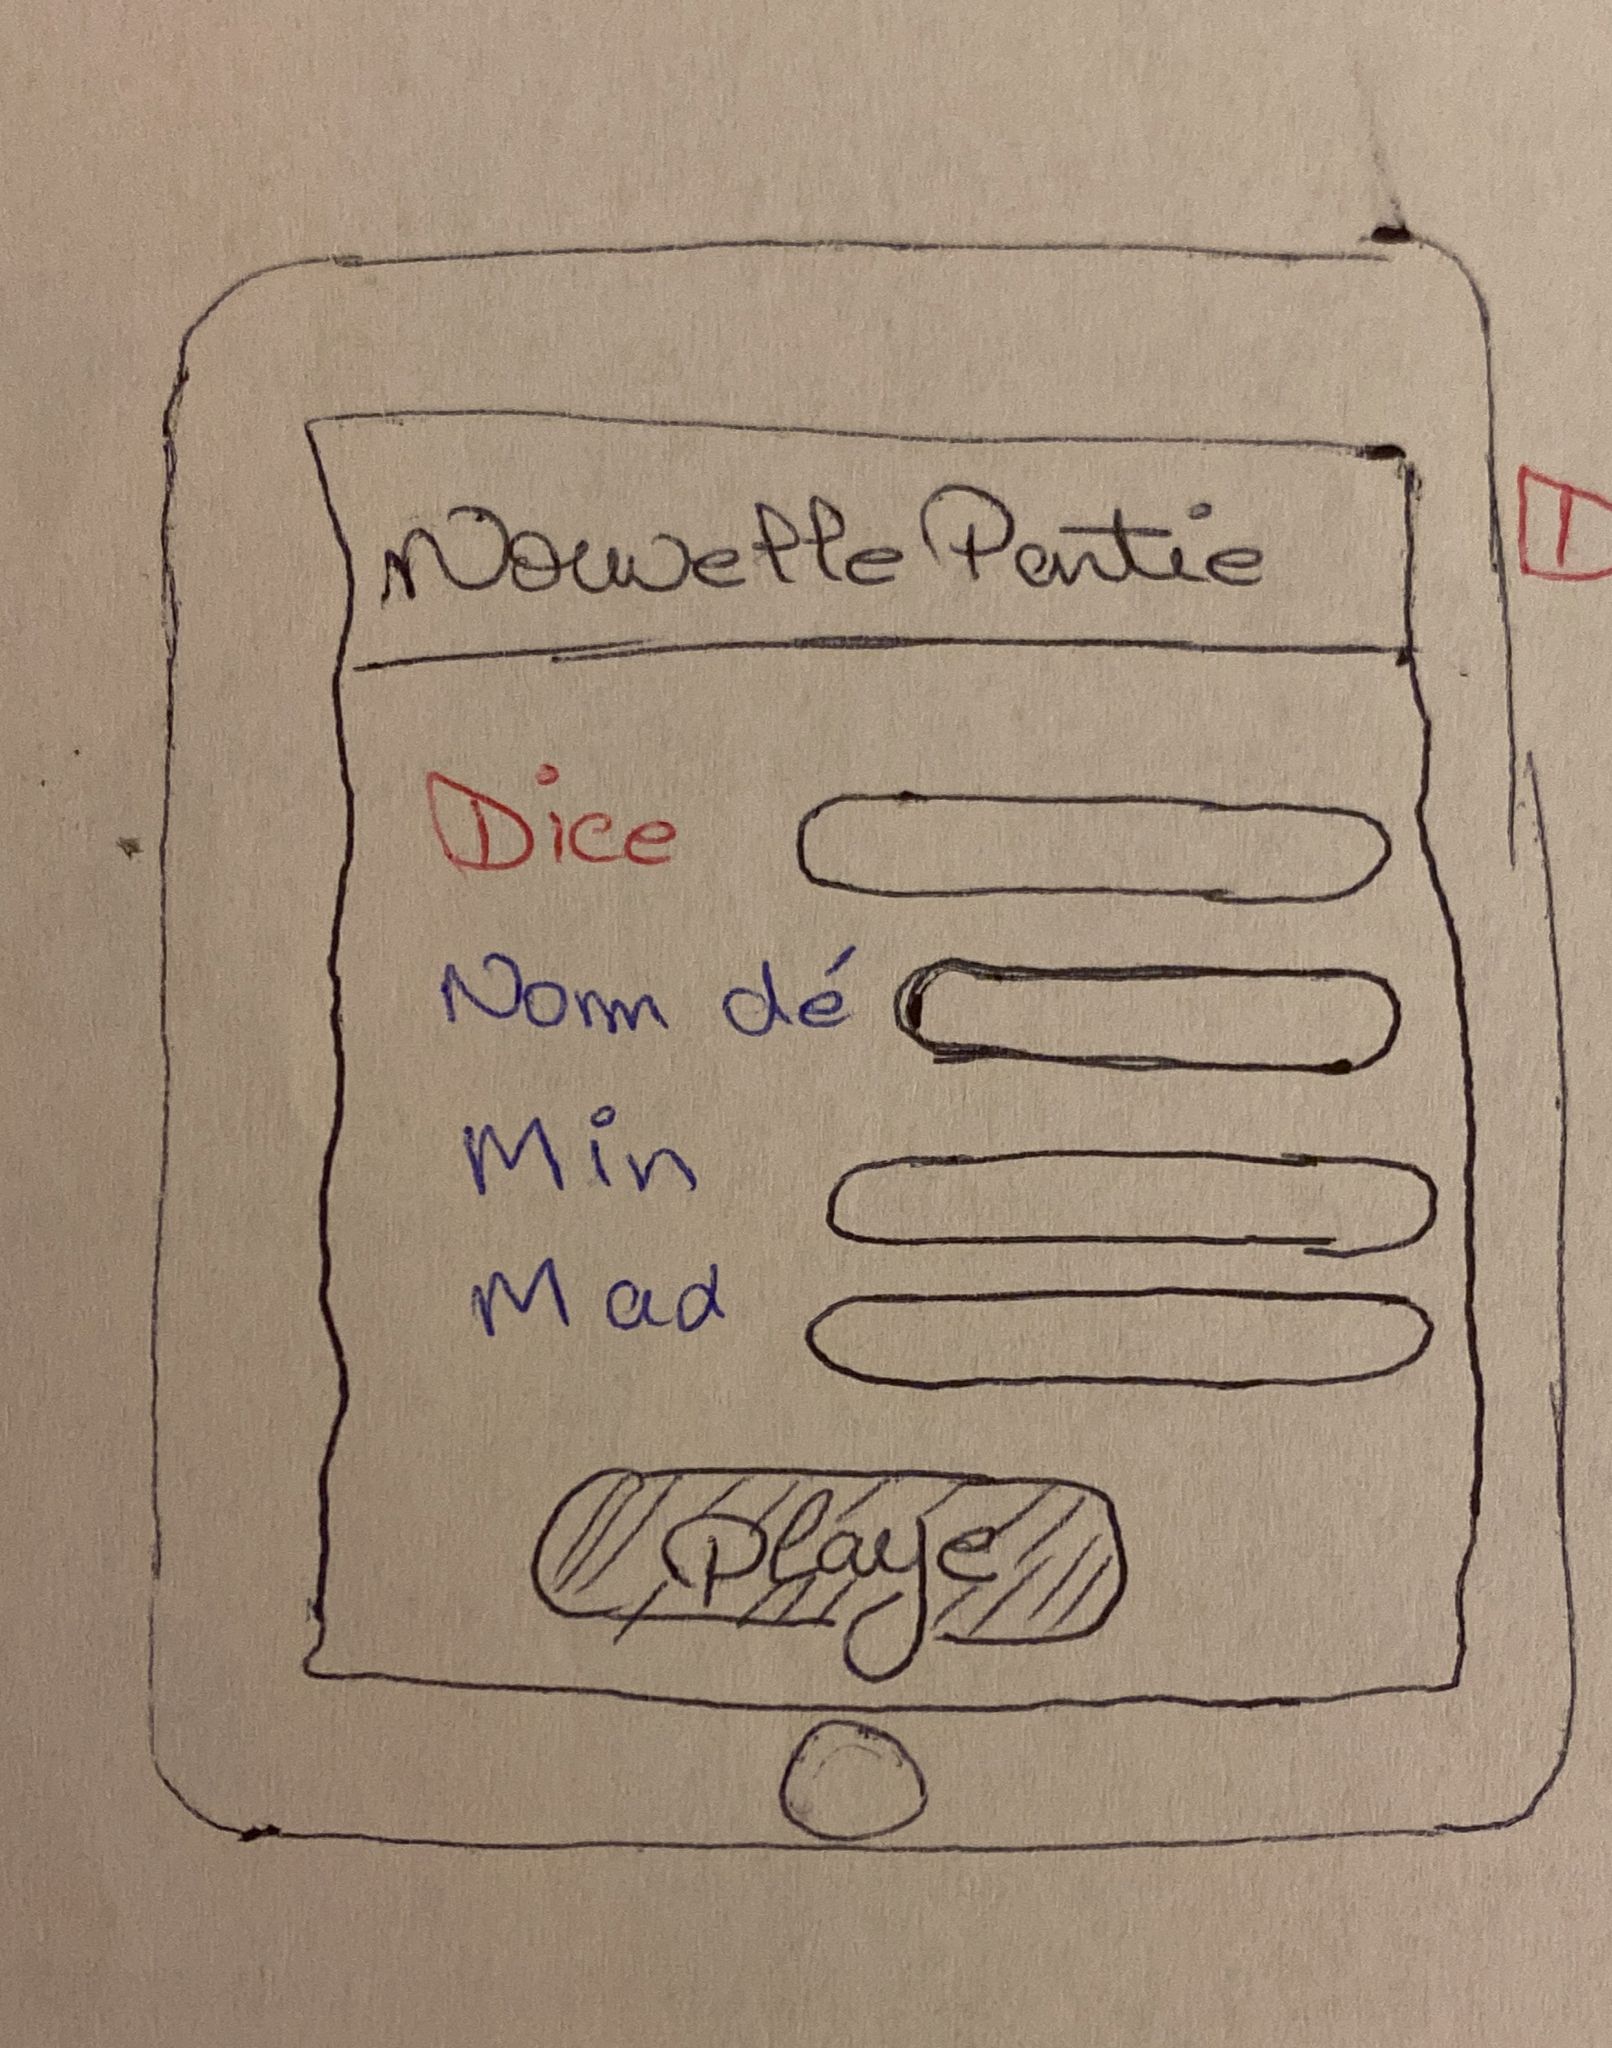 Nouvelle Partie
D
Dice
Nom dé
Min
Max
Playe